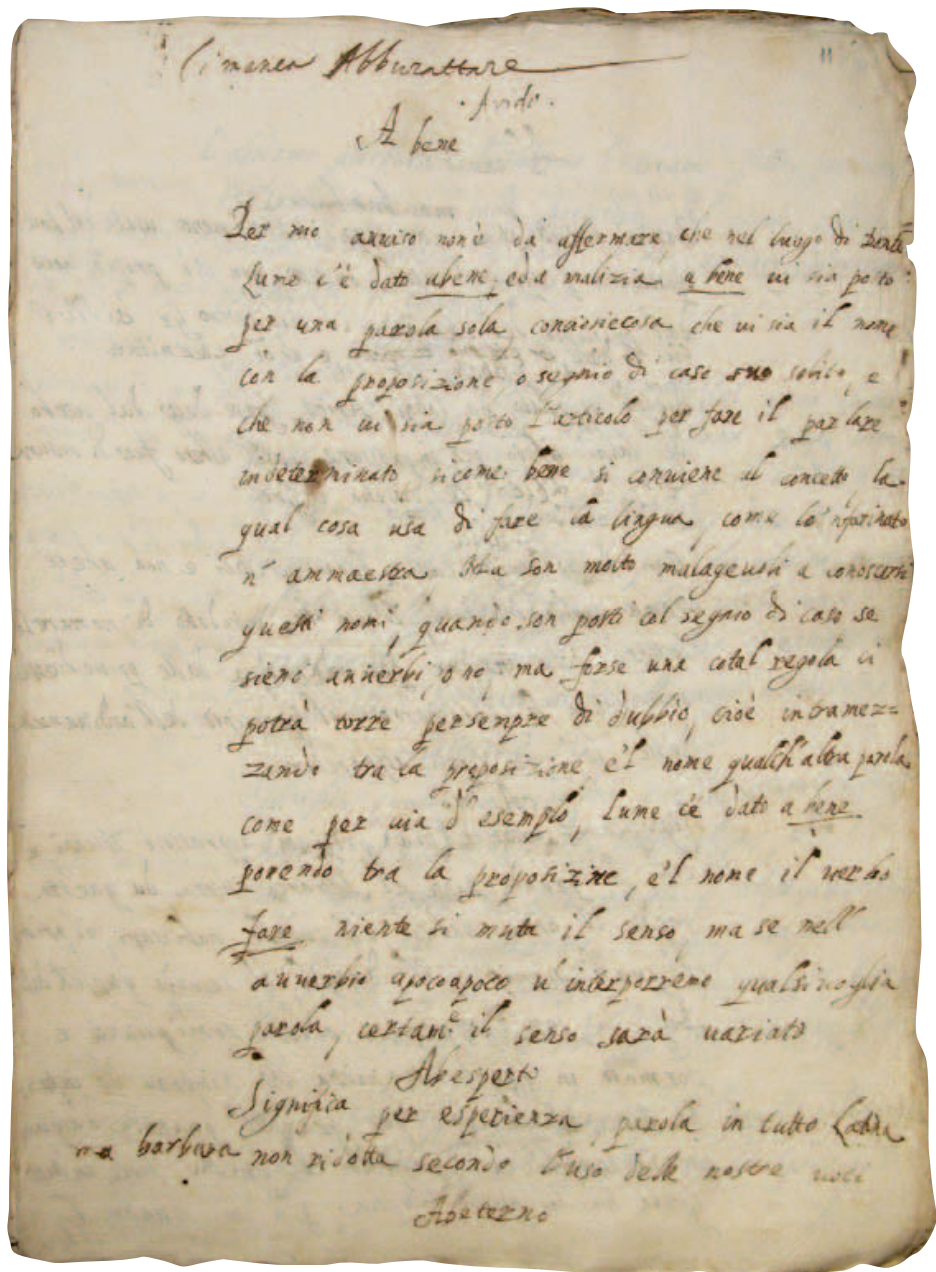 Ci manca Abburattare
11
Arido.
A bene
Per mio auuiso non è da affermare, che nel luogo di Dante
Lume c'è dato abene, ed a malizia a bene ui sia posto
per una parola sola concosiecosa che ui sia il nome
con la proposizione o segnio di caso suo solito, e
che non ui sia posto l'articolo per fare il parlare
indeterminato, sicome bene si conuiene al concetto, la
qual cosa usa di fare la lingua, come lo 'nfarinato
n' ammaestra Ma son molto malageuoli a conoscersi
questi nomi, quando son posti col segnio di caso se
sieno auuerbi, o no, ma forse una cotal regola ci
potrà torre persempre di dubbio, cioè intramez=
zando tra la preposizione, e'l nome qualch'altra parola
come per uia d'esemplo, Lume c'è dato a bene
ponendo tra la proposizine, e'l nome il uerbo
fare niente si muta il senso, ma se nell'
auuerbio apocoapoco u' interporremo qualsiuoglia
parola, certam.e il senso sarà uariato
Abesperto
Significa per esperienza, parola in tutto Latina
ma barbara non ridotta secondo l'uso delle nostre uoci
Abeterno